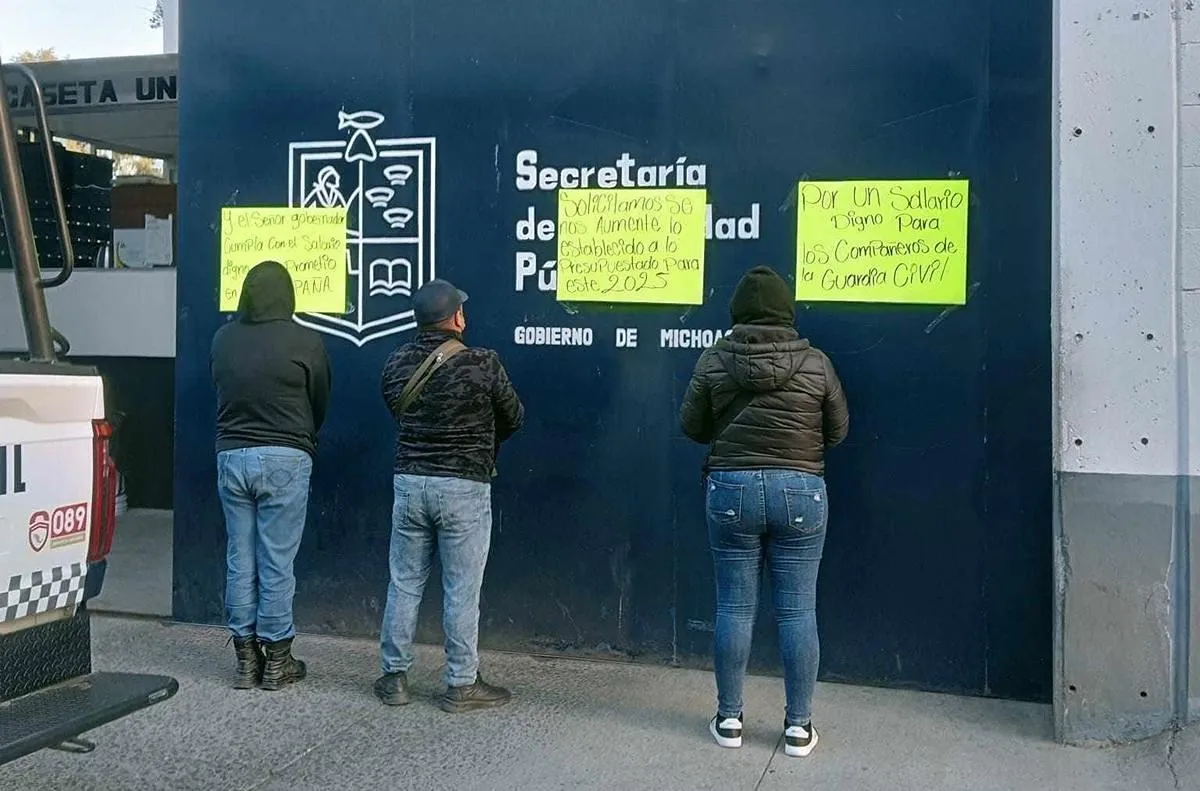 CASETA UN
Secretaría
de dad
Pú
GOBIERNO DE MICHOA
Y el Señor gobernador
Cumpla Con el Salario
digno Prometio
en PAÑA
Solicitamos Se
nos Aumente lo
establecido a lo
Presupuestado Para
este 2025
Por un Salario
Digno Para
los Compañeros de
la Guardia Civil
089